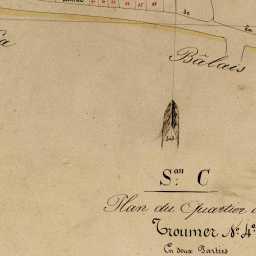 Bâlais
Son C
Plan du Quartier
Troumer No. 4e
En deux Parties